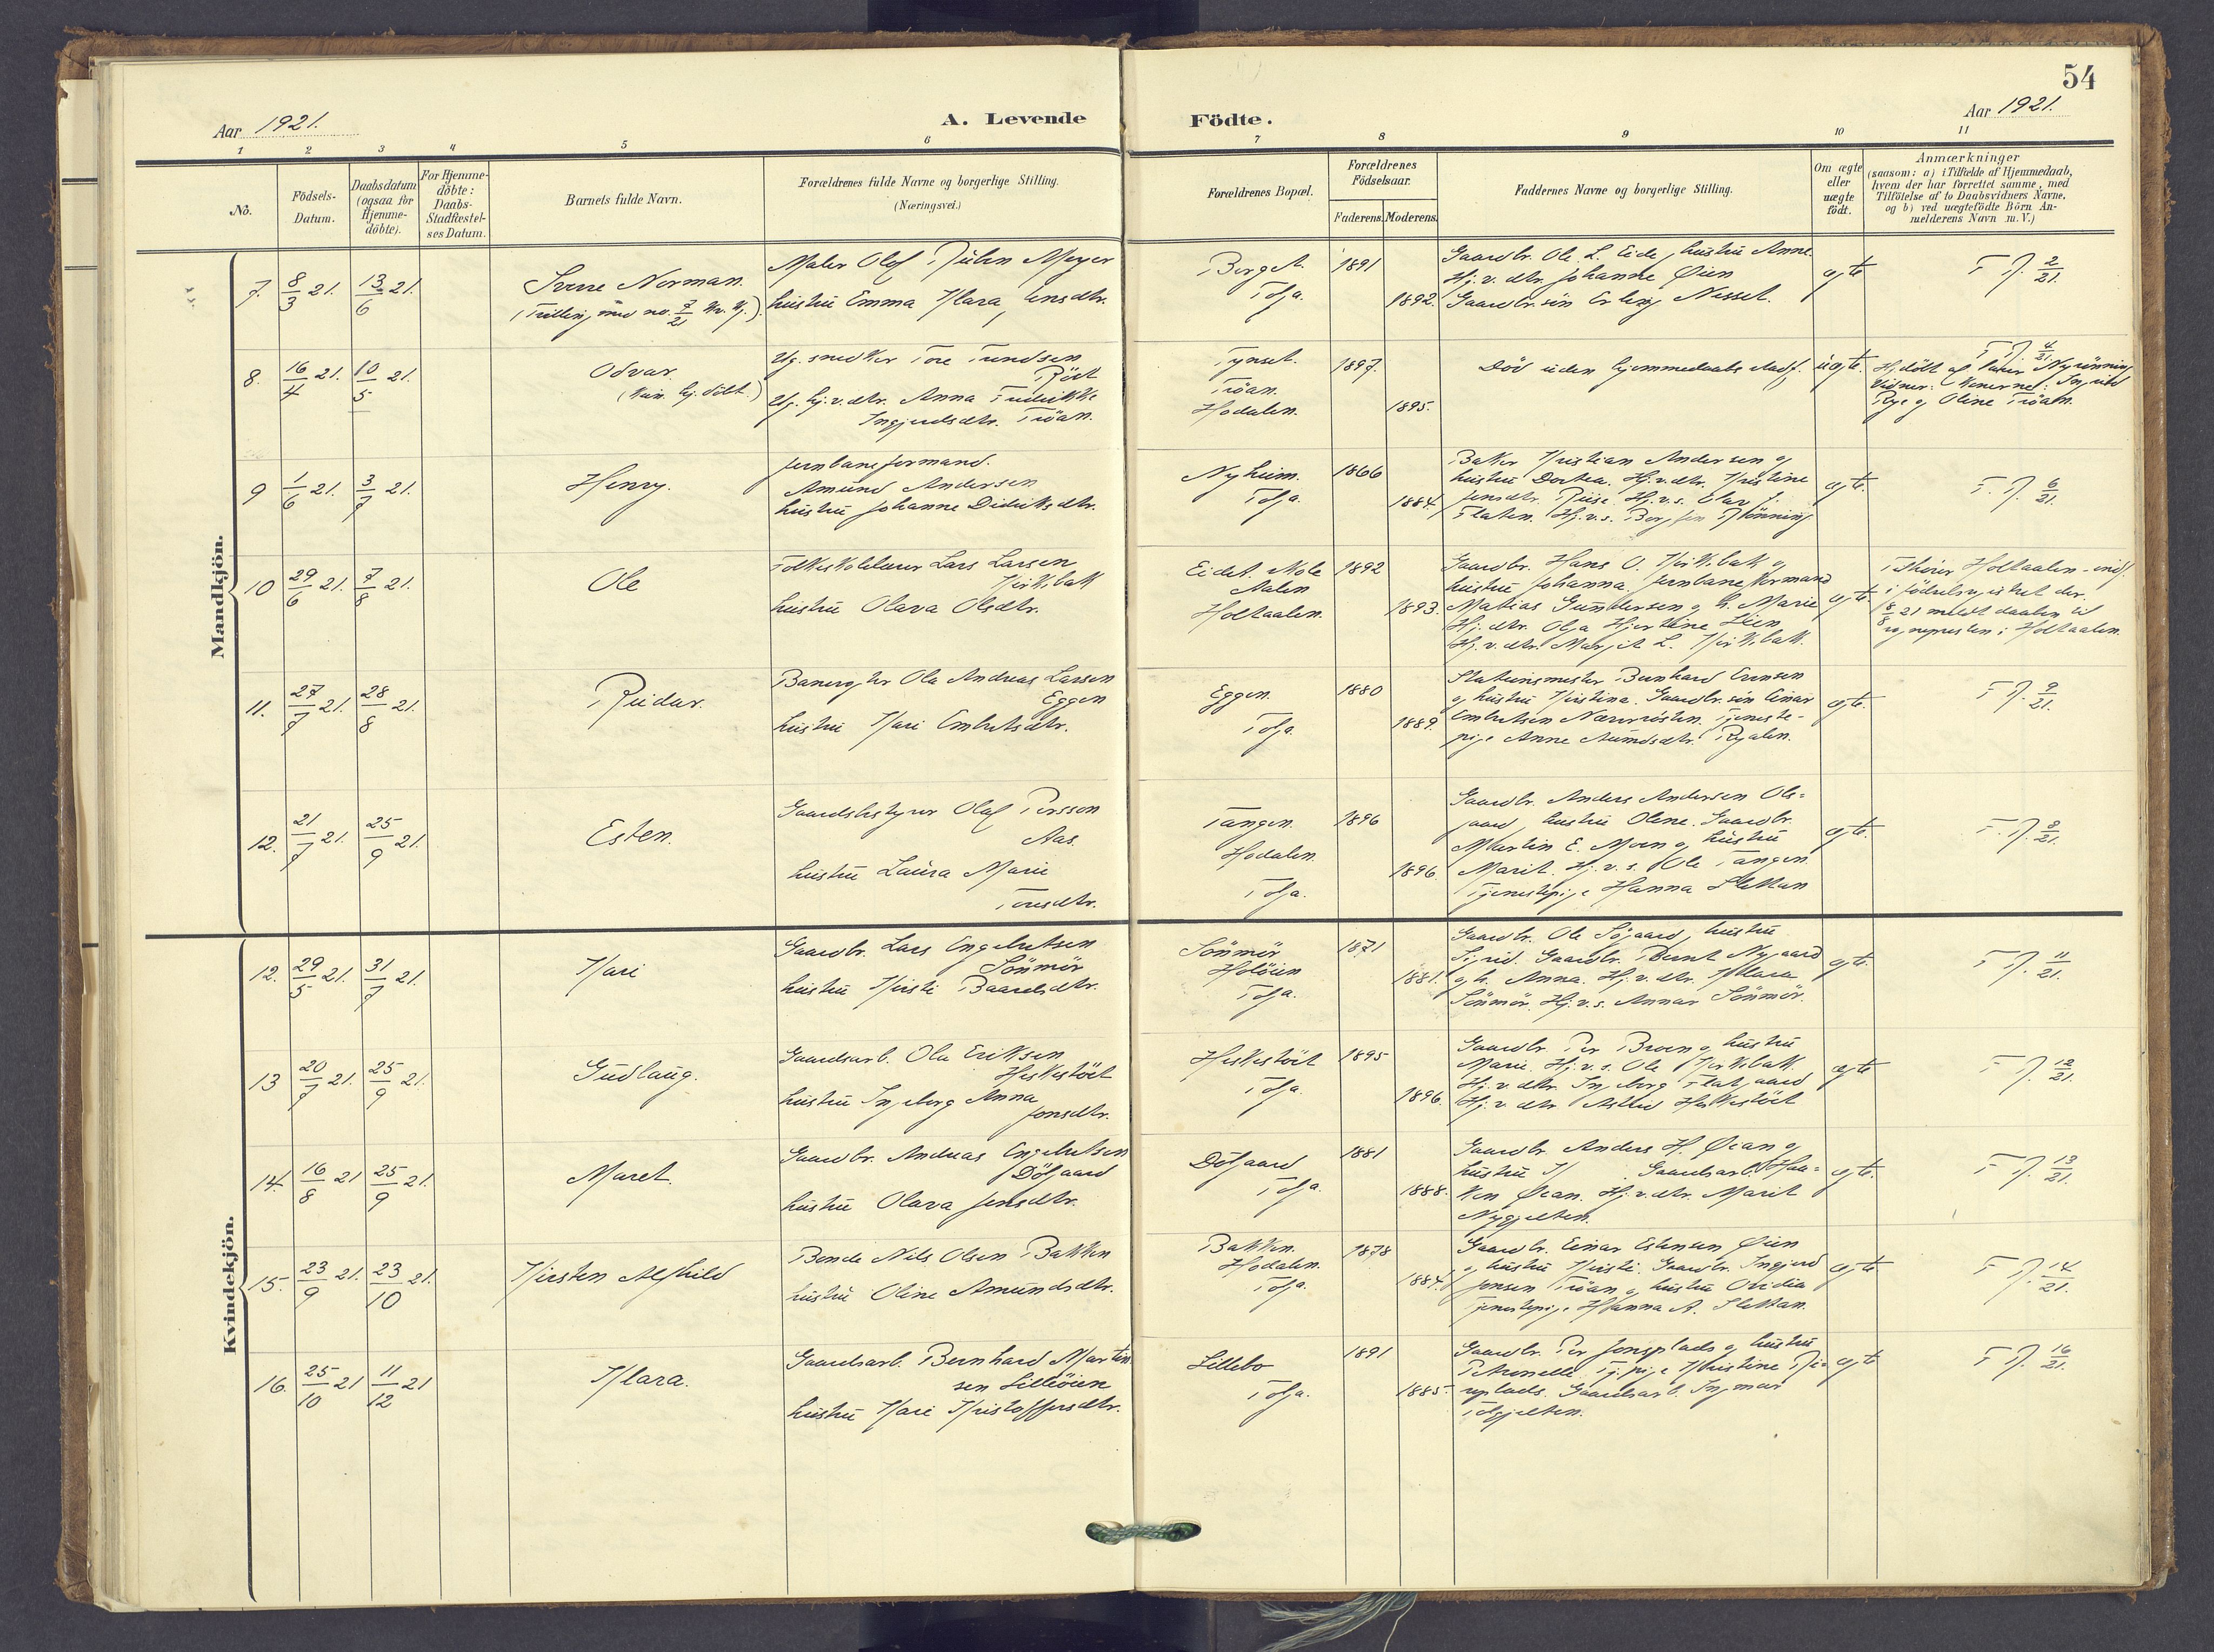 54
Aar 1921.
A. Levende Födte.
Aar 1921.
1 2 3 4 5 6 7 8 9 10 11
No.
Födsels-Datum.
Daabsdatum (ogsaa for Hjemme-döbte).
For Hjemme-döbte: Daabs-Stadfæstel-ses Datum.
Barnets fulde Navn.
Forældrenes fulde Navne og borgerlige Stilling.
(Næringsvei.)
Forældrenes Bopæl.
Forældrenes Födselsaar.
Faderens. Moderens.
Faddernes Navne og borgerlige Stilling.
Om ægte eller uægte födt.
Anmærkninger
(saasom: a) i Tilfælde af Hjemmedaab,
hvem der har forrettet samme, med
Tilföielse af to Daabsvidners Navne,
og b) ved uægtefödte Börn An-
melderens Navn m.V.)
Mandkjön.
7. 8/3 21. 13/6 21. Sverre Norman.
(Tvilling med no. 7/21 Kv. Kj.)
Maler Olof Rüben Meyer
hustru Emma Klara Jensdtr.
Berget.
Tolga.
1891
1892.
Gaardbr. Ole L. Eide, hustru Anne
Hj.v. dtr. Johanne Øien
Gaardbr. sön Erling Nesset.
egte
F.R. 2/21.
8. 16/4 21. 10/5 21. Odvar.
(Kun hj. döbt.)
Ug. snedker Tore Trondsen
Röst
Ug. hj.v. dtr. Anna Fredrikke
Ingjerdsdtr. Tröan.
Tynset.
Tröan.
Hodalen.
1897.
1895.
Död uden hjemmedaabs stadf.
uegte.
F.R. 4/21.
Hj.döbt af Nyrönning
Vidner: Konerne: Ingrid
Rye og Oline Tröan.
9 1/6 21. 3/7 21. Henry.
Jernbaneformand.
Amund Andersen
hustru Johanne Didriksdtr.
Nyheim.
Tolga.
1866
1884.
Baker Kristian Andersen og
hustru Dortea. Hj.v.dtr. Kristine
Jensdtr. Riise. Hj.v.s. Olav J.
Flaten. Hj.v.s. Rönning
egte.
F.R. 6/21.
10 29/6 21. 7/8 21. Ole
Folkeskolelærer Lars Larsen
Kirkbak
hustru Olava Olsdtr.
Eidet. Mole
Aalen
Holtaalen.
1892
1893.
Gaardbr. Hans O. Kirkbak og
hustru Johanna, Jernbaneformand
Matias Gundersen og h. Marie
Hj. dtr. Olga Hjertine Lien
Hj.v.dtr. Margit L. Kirkbak.
egte
Tilhörer Holtaalen - indf.
i födselsregistret der.
8/8 21 meldt daaben til
sognepresten i Holtaalen.
11. 27/7 21. 28/8 21. Reidar.
Banevogter Ola Andreas Larsen
Eggen
hustru Kari Embretsdtr.
Eggen.
Tolga.
1880
1889.
Stationsmester Bernhard Evensen
og hustru Kristina. Gaardbr. sön Einar
Embretsen Tjeneste-
pige Anne Aumdsdtr. Ryalen.
egte.
F.R. 9/21.
12. 21/7 21. 25/9 21. Esten.
Gaardsbestyrer Olaf Persson
Aas.
hustru Laura Marie
Toresdtr.
Tangen.
Hodalen
Tolga.
1896
1896.
Gaardbr. Anders Andersen Ols-
gaard, hustru Olene. Gaardbr.
Martin E. Moen og hustru
Marit. Hj.v.s. Ole Tangen.
Tjenestepige Hanna Slettan
egte.
F.R. 8/21.
Kvindekjön.
12. 29/5 21. 31/7 21. Kari
Gaardbr. Lars Engebretsen
Sönmör
hustru Kirsti Baardsdtr.
Sönmör
Holöien
Tolga.
1871
1881.
Gaardbr. Ole Sögaard, hustru
Sigrid. Gaardbr. Bernt Nygaard
og h. Anna. Hj.v.dtr. Klara
Sönmör. Hj.v.s. Annar Sönmör.
egte.
F.R. 11/21.
13 20/7 21. 25/9 21. Gudlaug.
Gaardsarb. Ola Eriksen
Heskestöet
hustru Ingeborg Anna
Jonsdtr.
Heskestöet
Tolga.
1895
1896.
Gaardbr. Per Broen og hustru
Marie. Hj.v.s. Ole Kirkbak.
Hj.v.dtr. Ingeborg Flatgaard
Hj.v.dtr Astrid Heskestöet
egte
F.R. 12/21.
14. 16/8 21 25/9 21. Maret.
Gaardbr. Andreas Engebretsen
Dölgaard
hustru Olava Jensdtr.
Dölgaard
Tolga.
1881
1888.
Gaardbr Anders H. Øian og
hustru K. Gaardsarb. Haa-
ken Øian. Hj.v.dtr. Marit
Nygjelten.
egte.
F.R. 13/21.
15. 23/9 21. 23/10 21. Kirsten Alfhild
Bonde Nils Olsen Bakken
hustru Oline Amundsdtr.
Bakken.
Hodalen.
Tolga.
1878
1884.
Gaardbr. Einar Estensen Øien
og hustru Kirsti. Gaardbr. Ingjerd
Jonsen Tröan og hustru Ovidia
Tjenestepige Hanna A. Slettan.
egte
F.R. 14/21.
16. 25/10 21 11/12 21 Klara.
Gaardsarb. Bernhard Martin
sen Lilleöien
hustru Kari Kristoffersdtr.
Lillebo
Tolga.
1891
1885.
Gaardbr. Per Jonsplads og hustru
Petronelle. Tj.pige Kristine
Gaardsarb. Ingmar
Tolgjelten.
egte
F.R. 16/21.